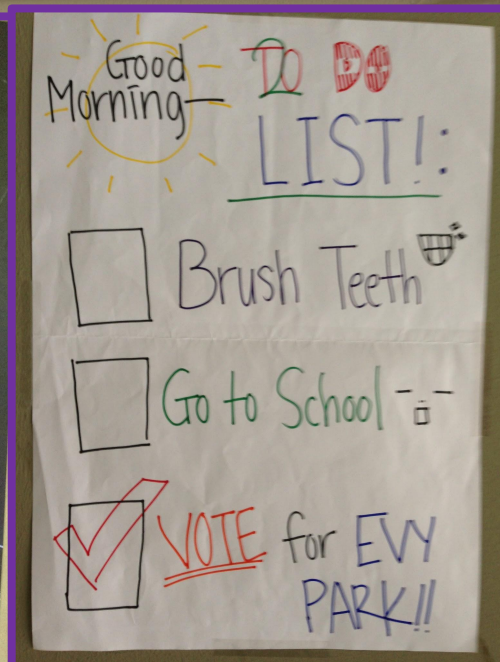 Good
Morning— TO DO
LIST!:
Brush Teeth
Go to School
VOTE for EVY
PARK!!